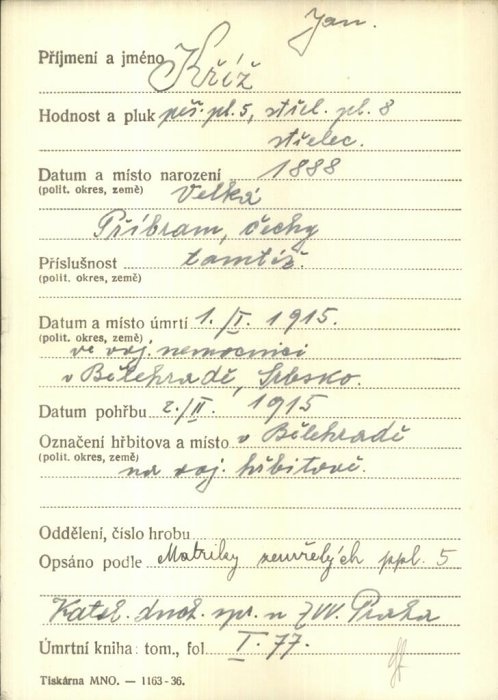 Jan.
Příjmení a jméno Kříž
Hodnost a pluk pěš. pl. 5, střel. pl. 8
střelec.
Datum a místo narození 1888
(polit. okres, země) Velká
Příbram, čechy
Příslušnost tamtéž.
(polit. okres, země)
Datum a místo úmrtí 1./I. 1915.
(polit. okres, země) ve voj. nemocnici
v Bělehradě, Srbsko.
Datum pohřbu 2./II. 1915
Označení hřbitova a místo v Bělehradě
(polit. okres, země) na voj. hřbitově.
Oddělení, číslo hrobu
Opsáno podle Matriky zemřelých ppl. 5
Katol. duch. spr. u ZVV. Praha
Úmrtní kniha: tom., fol I. 77.
Tiskárna MNO. — 1163-36.